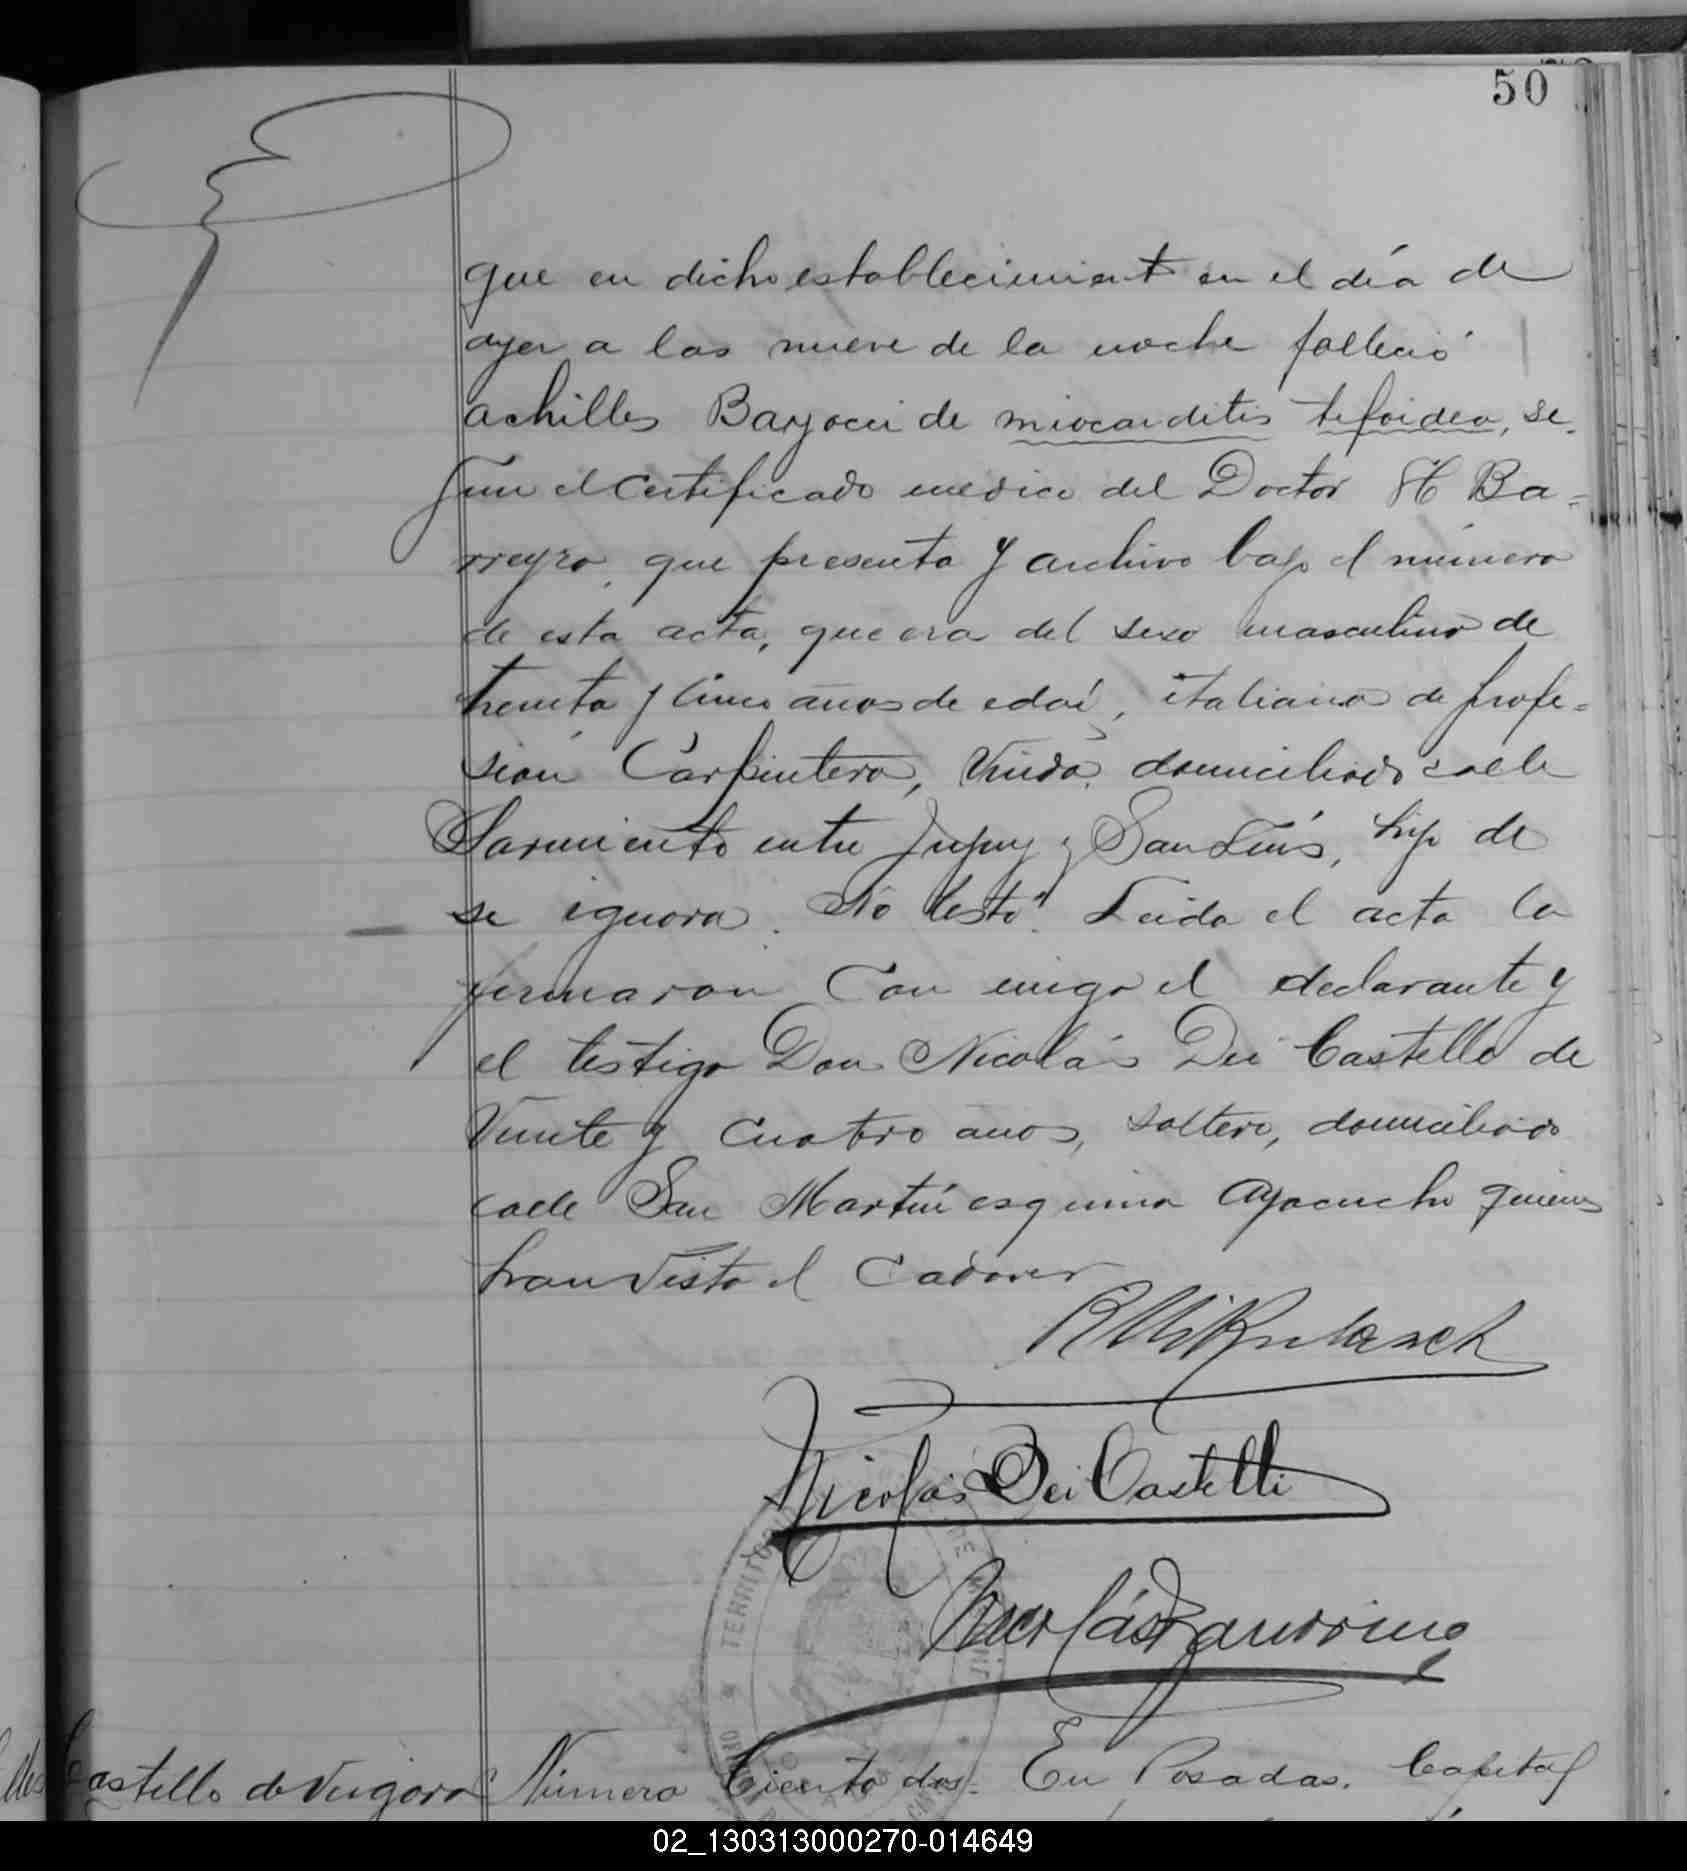 50
que en dicho establecimient en el día de
ayer a las nueve de la noche falleció
Achilles Bayocci de miocarditis tifoidea, se-
gun el certificado medico del Doctor H Ba-
rreyro, que presenta y archivo bajo el número
de esta acta, que era del sexo masculino de
treinta y cinco años de edad, italiano de profe-
sion Carpintero, viudo, domiciliado calle
Sarmiento entre Jujuy y San Luis, hijo de
se ignora. No testó. Leida el acta la
firmaron con migo el declarante y
el testigo Don Nicolás Dei Castello de
Veinte y cuatro años, soltero, domiciliado
calle San Martín esquina Ayacucho quienes
han visto el Cadaver
Nicolás Dei Castelli
TERRITORIO
Castello de Vergara Número Ciento dos. En Posadas. Capital
02_130313000270-014649